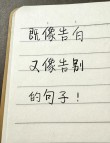 既像告白
又像告别
的句子!